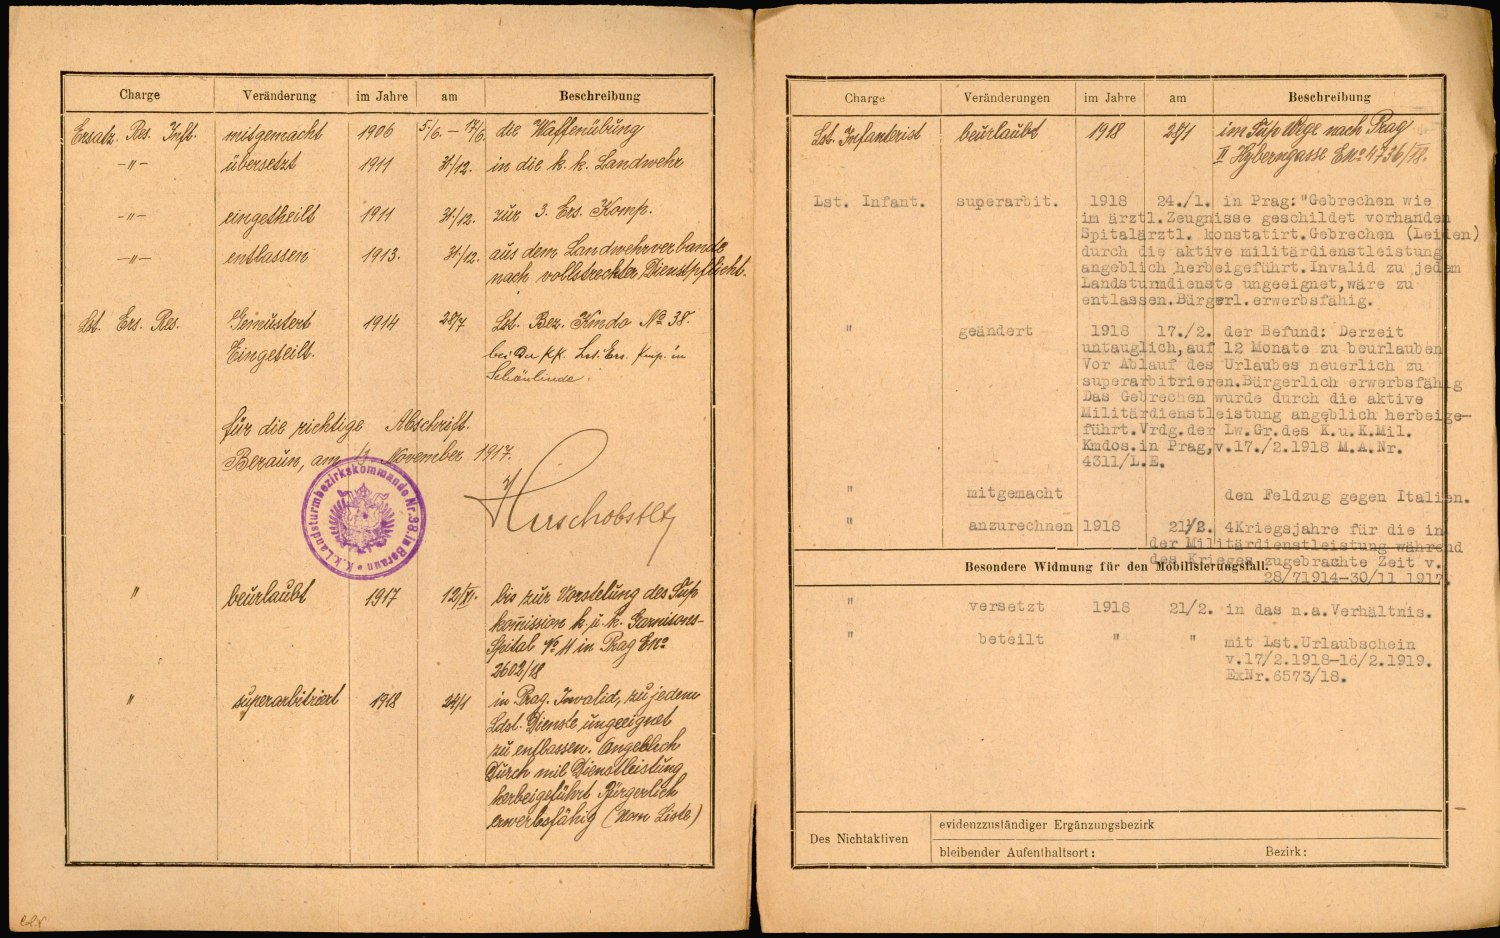 Charge Veränderung im Jahre am Beschreibung
Ersatz. Res. Inft. mitgemacht 1906 5./6. – 17/6. die Waffenübung
–"– übersetzt 1911 31./12. in die k. k. Landwehr
–"– eingetheilt 1911 31./12. zur 3. Ers. Komp.
–"– entlassen 1913. 31./12. aus dem Landwehrverbande
nach vollstreckter Dienstpflicht.
Lst. Ers. Res. Gemustert 1914 28/7 Lst. Bez. Kmdo No 38.
Eingeteilt. bei der K.K. Lst. Ers. Kmp. in
Schönlinde.
für die richtige Abschrift.
Beraun, am November 1917.
K.k. Landsturmbezirkskommando Nr. 38. in Beraun
" beurlaubt 1917 12/XI. bis zur Vorstellung des Sup
kom̄ission k. u. k. Garnisons-
Spital No 11 in Prag ENo
2602/18
" superarbitriert 1918 24/1 in Prag. Invalid, zu jedem
Ldst. Dienste ungeeignet
zu entlassen. Angeblich
Durch mil Dienstleistung
herbeigeführt Bürgerlich
erwerbsfähig (vom Liste)
Charge Veränderungen im Jahre am Beschreibung
Lst. Infanterist beurlaubt 1918 28/1 im Sup Wege nach Prag
II Hyberngasse ENo 4736/18.
Lst. Infant. superarbit. 1918 24./1. in Prag: "Gebrechen wie
im ärztl. Zeugnisse geschildet vorhanden
Spitalärztl. konstatirt. Gebrechen (Leiden)
durch die aktive militärdienstleistung
angeblich herbeigeführt. Invalid zu jedem
Landsturmdienste ungeeignet, wäre zu
entlassen. Bürgerl. erwerbsfähig.
" geändert 1918 17./2. der Befund: Derzeit
untauglich, auf 12 Monate zu beurlauben
Vor Ablauf des Urlaubes neuerlich zu
superarbitrieren. Bürgerlich erwerbsfähig
Das Gebrechen wurde durch die aktive
Militärdienstleistung angeblich herbeige-
führt. Vrdg. der Lw. Gr. des K. u. K. Mil.
Kmdos. in Prag, v. 17./2. 1918 M.A. Nr.
4311/L.E.
" mitgemacht den Feldzug gegen Italien.
" anzurechnen 1918 21/2. 4 Kriegsjahre für die in
der Militärdienstleistung während
des Krieges zugebrachte Zeit v.
28/7 1914-30/11 1917.
Besondere Widmung für den Mobilisierungsfall.
" versetzt 1918 21/2. in das n.a. Verhältnis.
" beteilt " " mit Lst. Urlaubschein
v. 17/2. 1918-16/2. 1919.
ExNr. 6573/18.
Des Nichtaktiven
evidenzzuständiger Ergänzungsbezirk
bleibender Aufenthaltsort: Bezirk: